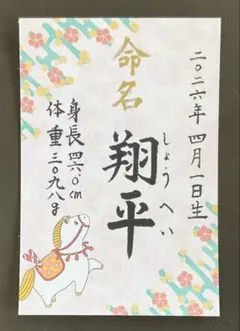 二〇二六年 四月一日生
命名
翔平
しょうへい
身長 四六.〇cm
体重 三〇九八g